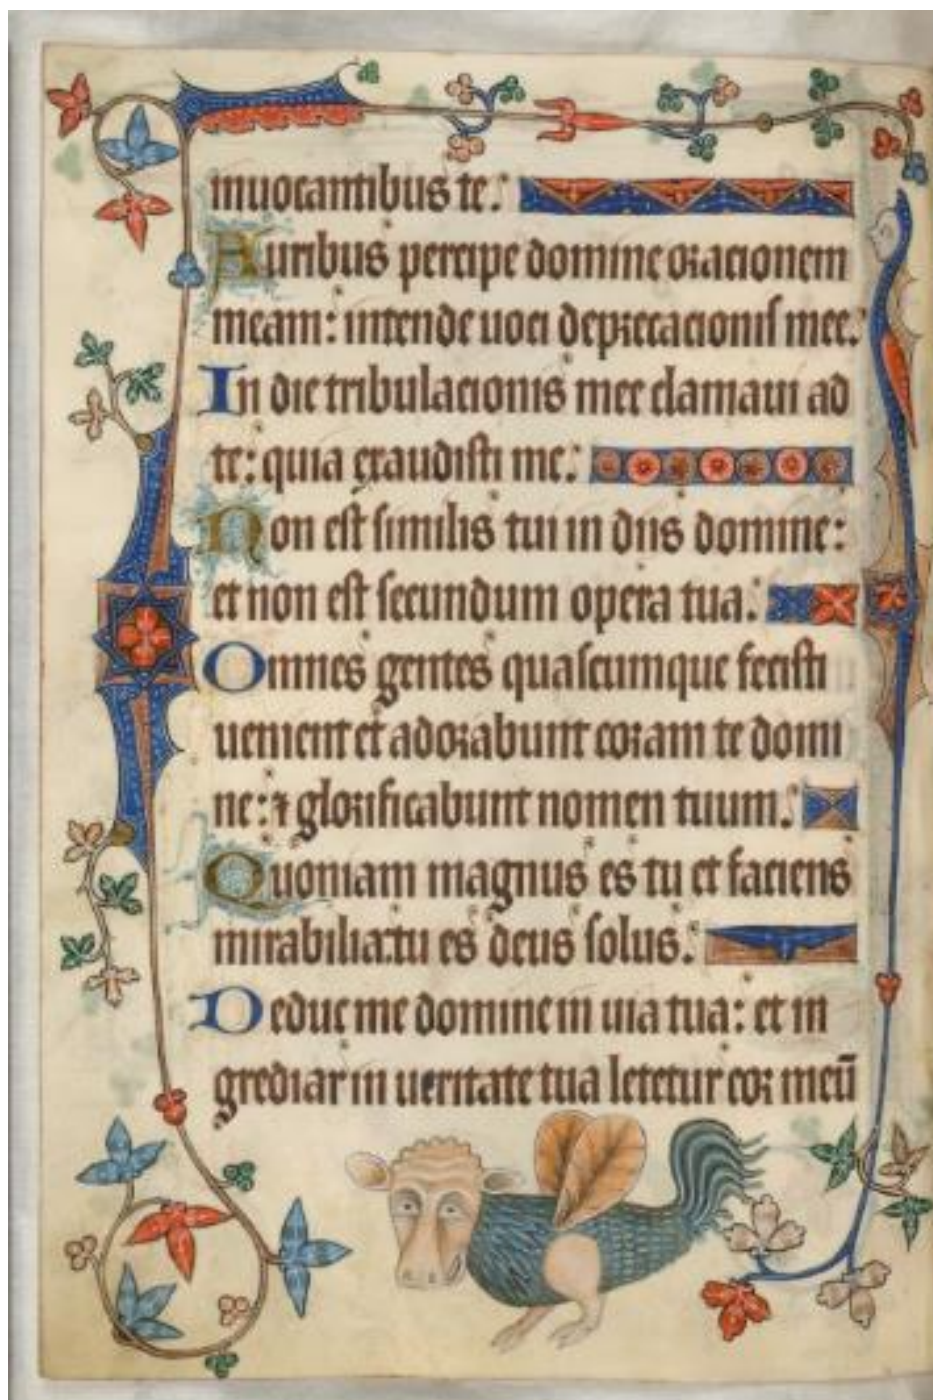 inuocantibus te.
Auribus percipe domine oracionem
meam: intende uoci deprecacionis mee.
In die tribulacionis mee clamaui ad
te: quia exaudisti me.
Non est similis tui in diis domine:
et non est secundum opera tua.
Omnes gentes quascumque fecisti
uenient et adorabunt coram te domi
ne: ⁊ glorificabunt nomen tuum.
Quoniam magnus es tu et faciens
mirabilia: tu es deus solus.
Deduc me domine in uia tua: et in
grediar in ueritate tua letetur cor meū